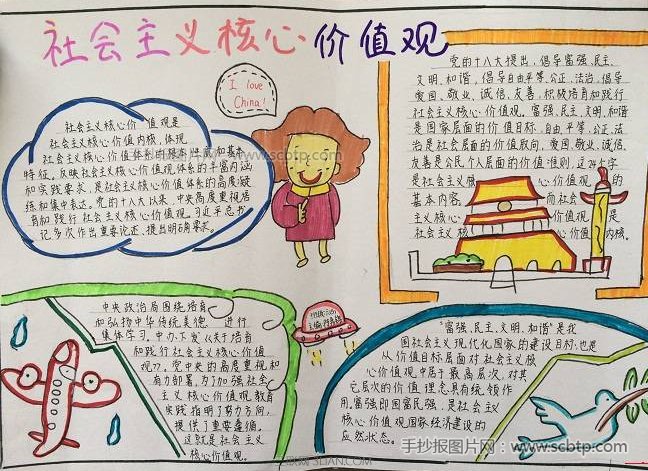 社会主义核心价值观
I love
China!
社会主义核心价值观是
社会主义核心价值内核,体现
社会主义核心价值体系的根本性质和基本
特征,反映社会主义核心价值观体系的丰富内涵
和实践要求,是社会主义核心价值体系的高度凝
练和集中表达。党的十八大以来,中央高度重视培
育和践行社会主义核心价值观。习近平总书
记多次作出重要论述、提出明确要求。
党的十八大提出,倡导富强、民主、
文明、和谐,倡导自由、平等、公正、法治,倡导
爱国、敬业、诚信、友善,积极培育和践行
社会主义核心价值观。富强、民主、文明、和谐
是国家层面的价值目标,自由、平等、公正、法
治是社会层面的价值取向,爱国、敬业、诚信、
友善是公民个人层面的价值准则,这24个字
是社会主义核心价值观的
基本内容。而社会
主义核心价值观是
社会主义核心价值内核。
中央政治局围绕培育
和弘扬中华传统美德进行
集体学习。中办下发《关于培育
和践行社会主义核心价值
观》。党中央的高度重视和
有力部署,为了加强社会
主义核心价值观教育
实践指明了努力方向,
提供了重要遵循。
这就是社会主义
核心价值观。
"富强、民主、文明、和谐"是我
国社会主义现代化国家的建设目标,也是
从价值目标层面对社会主义核
心价值观中居于最高层次,对其
它层次的价值理念具有统领作
用。富强即国富民强,是社会主义
核心价值观国家经济建设的
应然状态。
www.scbtp.com
www.scbtp.com
手抄报图片网:www.scbtp.com